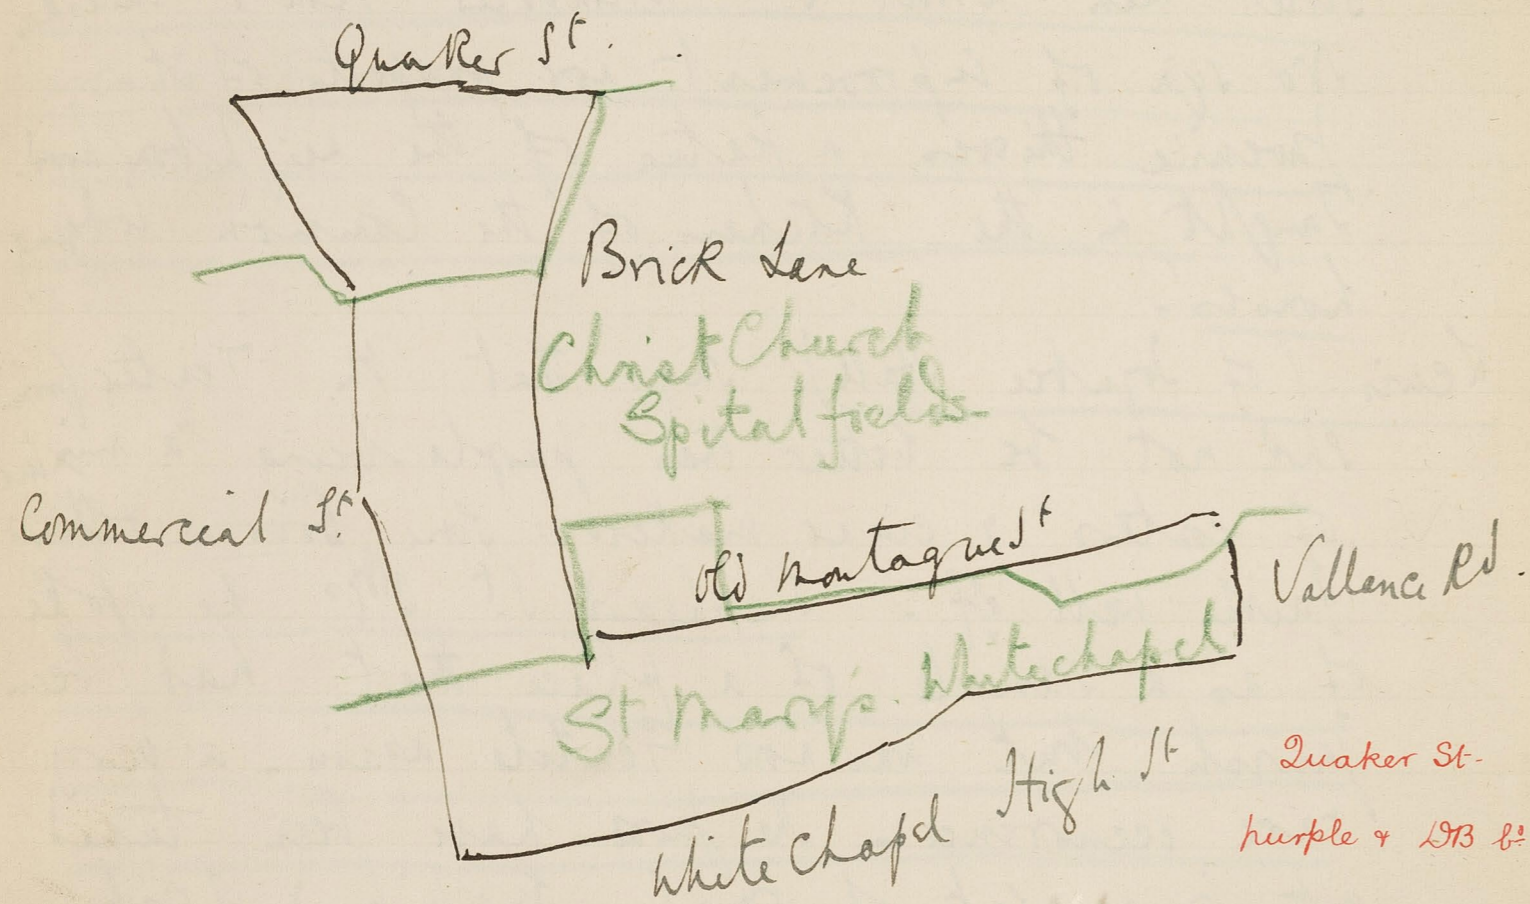 Quaker St.
Brick Lane
Christ Church
Spitalfields
Commercial St.
Old Montague St
Vallance Rd.
St Marys Whitechapel
White Chapel High St
Quaker St-
purple & DB